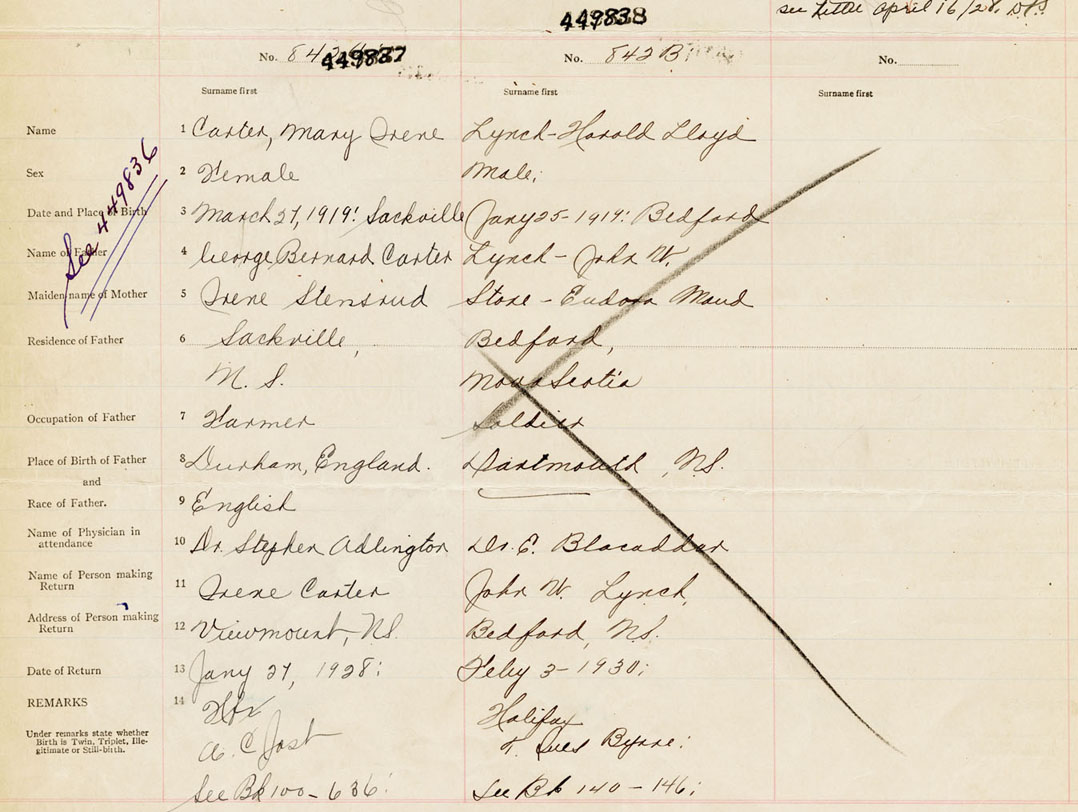 449838
see letter April 16/28.
No. 842 449837
No. 842 B.
No.
Surname first
Surname first
Surname first
Name 1 Carter, Mary Irene Lynch-Harold Lloyd
Sex 2 Female Male;
Date and Place of Birth 3 March 27, 1919: Sackville Jany 25-1919: Bedford
Name of Father 4 George Bernard Carter Lynch - John W.
Maiden name of Mother 5 Irene Stensrud Stone - Eudora Maud
See 449836
Residence of Father 6 Sackville, Bedford,
N. S. Nova Scotia
Occupation of Father 7 Farmer Soldier
Place of Birth of Father 8 Durham, England. Dartmouth, N.S.
and
Race of Father. 9 English
Name of Physician in
attendance 10 Dr. Stephen Adlington Dr. E. Blacaddar
Name of Person making
Return 11 Irene Carter John W. Lynch,
Address of Person making
Return 12 Viewmount, N.S. Bedford, N.S.
Date of Return 13 Jany 27, 1928: Feby 3-1930;
REMARKS 14 Hfx Halifax
Under remarks state whether
Birth is Twin, Triplet, Ille-
gitimate or Still-birth.
A. C. Jost Byrne:
See Bk 100-636: See Bk 140-146;